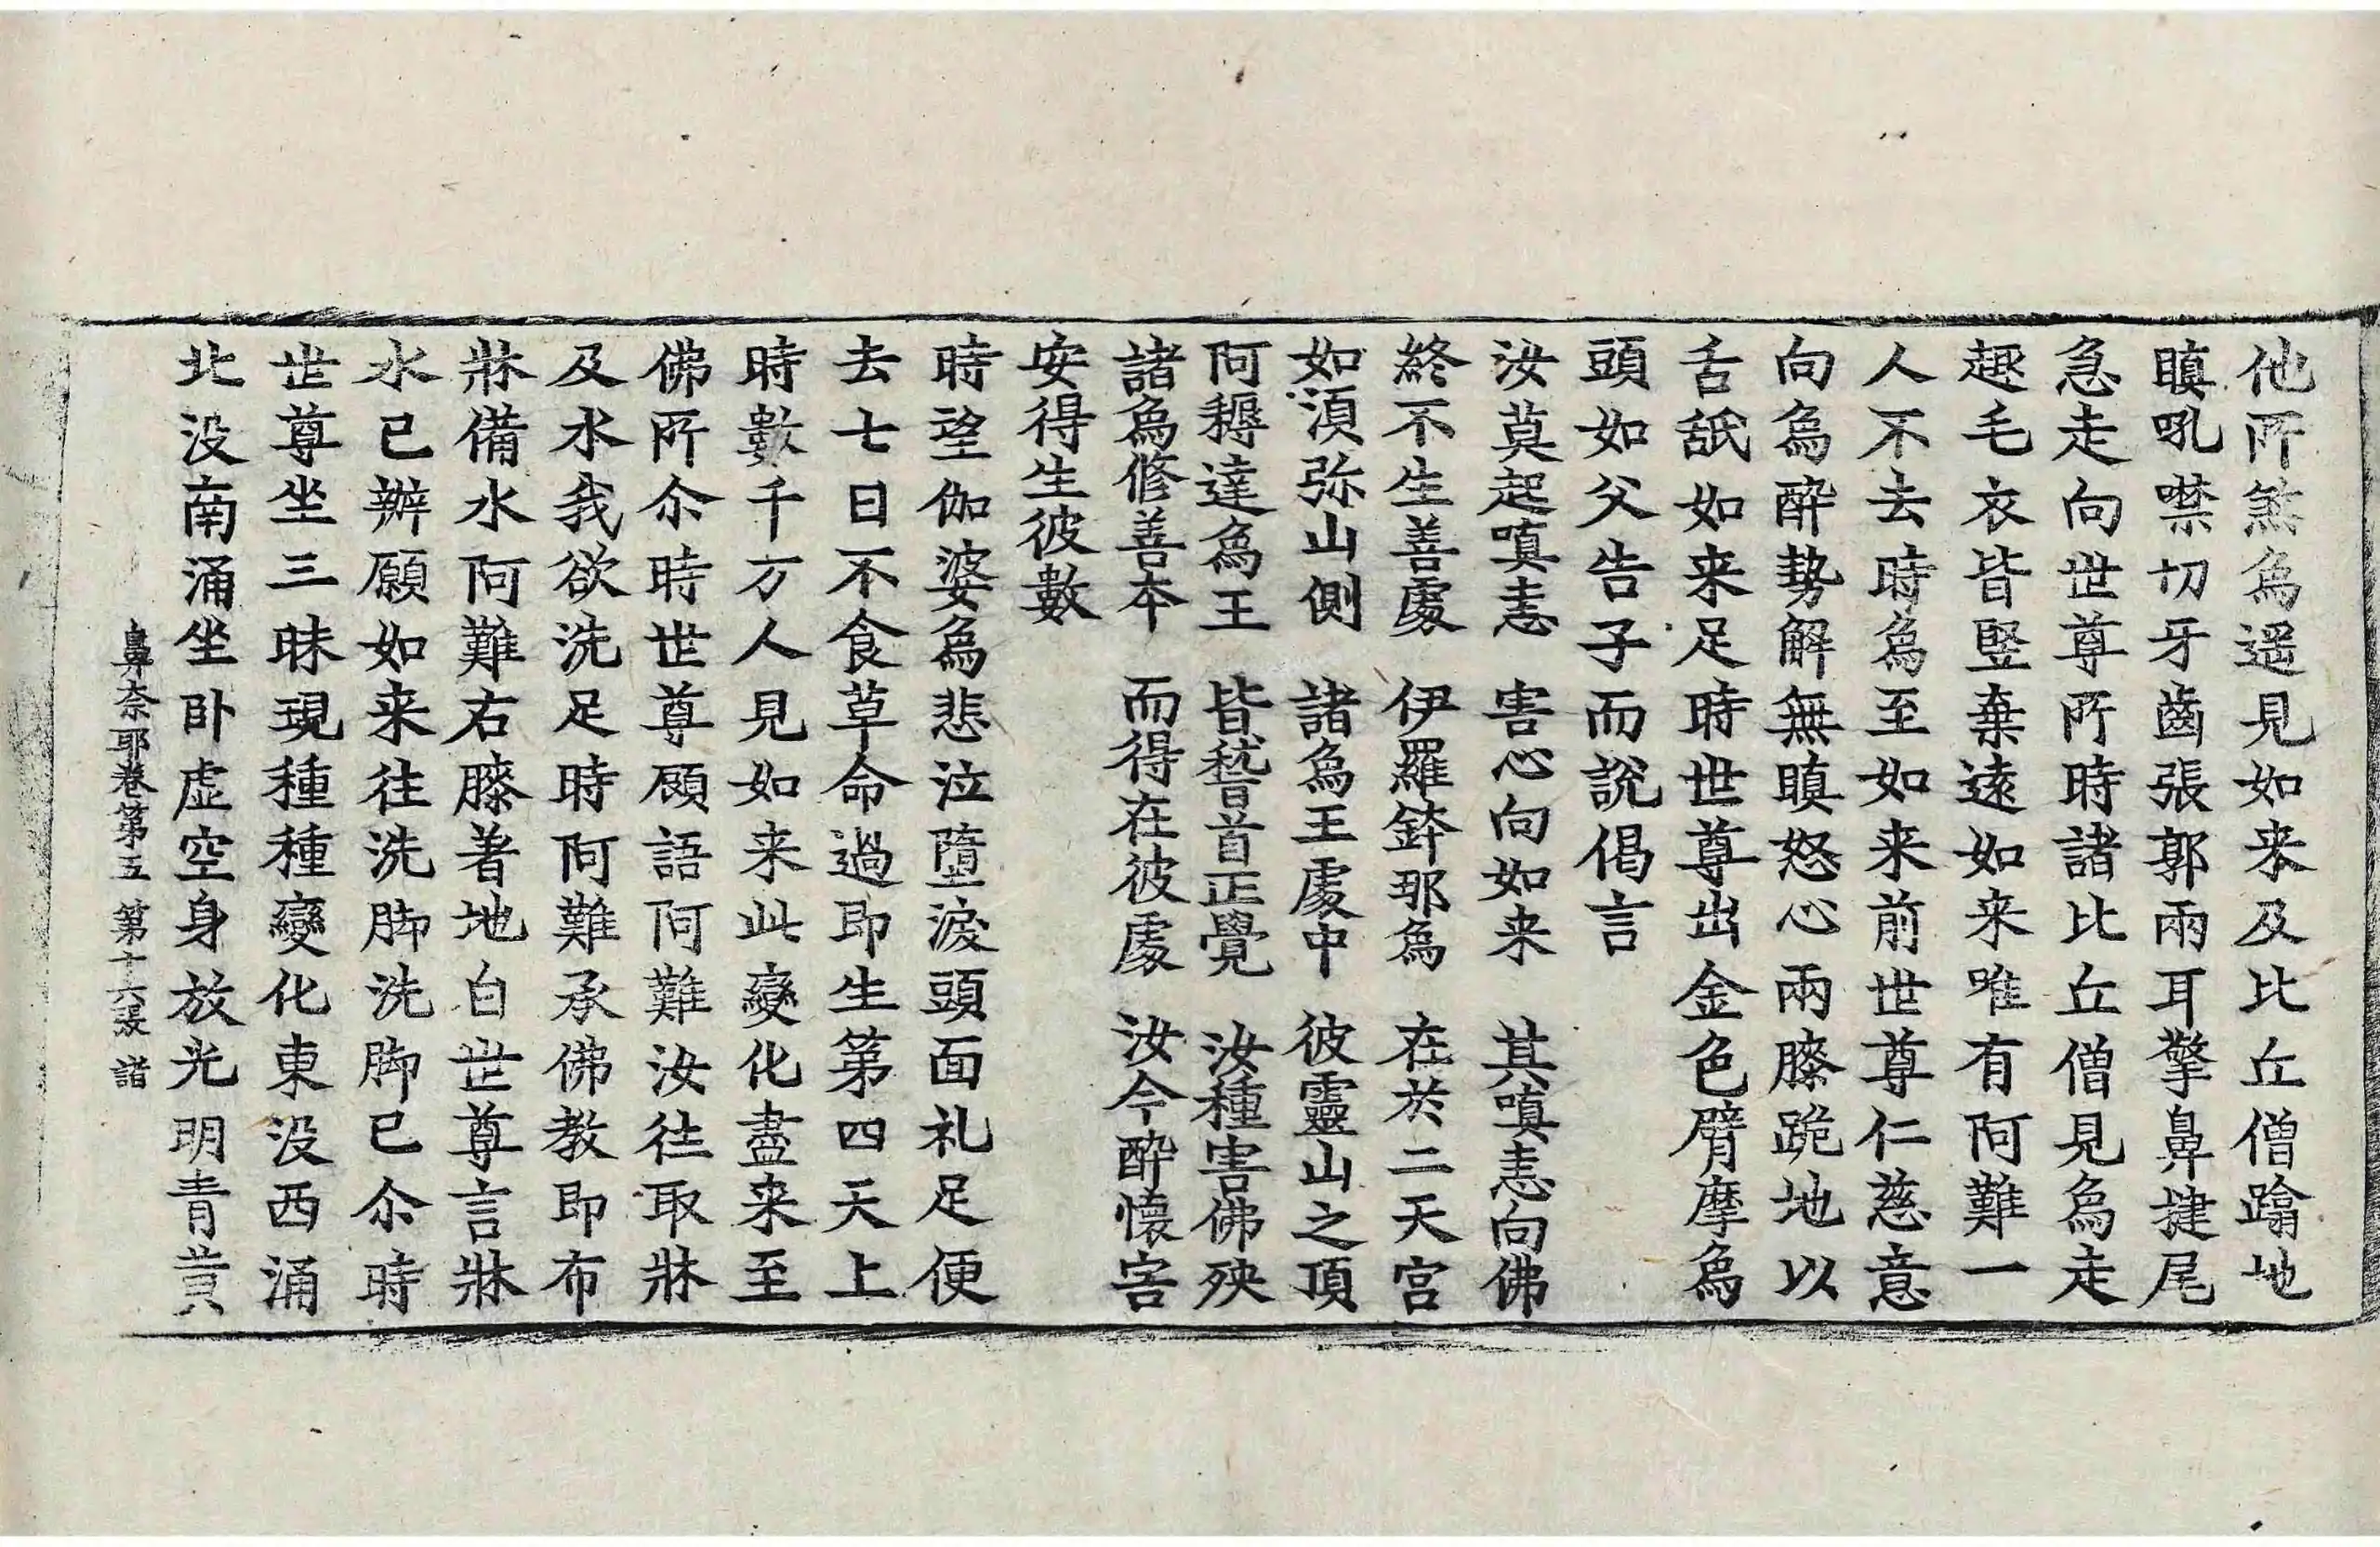 他所煞為遥見如来及比丘僧蹹地
瞋吼噤切牙齒張郭兩耳擎鼻揵尾
急走向世尊所時諸比丘僧見為走
趣毛衣皆竪棄遠如来唯有阿難一
人不去時為至如来前世尊仁慈意
向為醉勢解無瞋怒心兩膝跪地以
舌舐如来足時世尊出金色臂摩為
頭如父告子而說偈言
汝莫起嗔恚　害心向如来　其嗔恚向佛
終不生善處　伊羅鉢耶為　在於二天宮
如湏弥山側　諸為王處中　彼靈山之頂
阿耨達為王　皆嵇首正覺　汝種害佛殃
諸為修善本　而得在彼處　汝今醉懷害
安得生彼數
時望伽婆為悲泣墮淚頭面礼足便
去七日不食草命過即生第四天上
時數千万人見如来此變化盡来至
佛所尒時世尊顧語阿難汝往取牀
及水我欲洗足時阿難承佛教即布
牀備水阿難右膝著地白世尊言牀
水已辦願如来往洗脚洗脚已尒時
世尊坐三昧現種種變化東没西涌
北没南涌坐卧虚空身放光明青黄
鼻奈耶卷第五　第十六張　諧